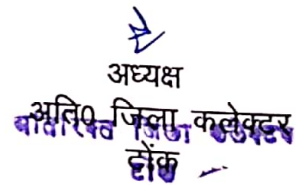 अध्यक्ष
अति० जिला कलेक्टर
टोंक